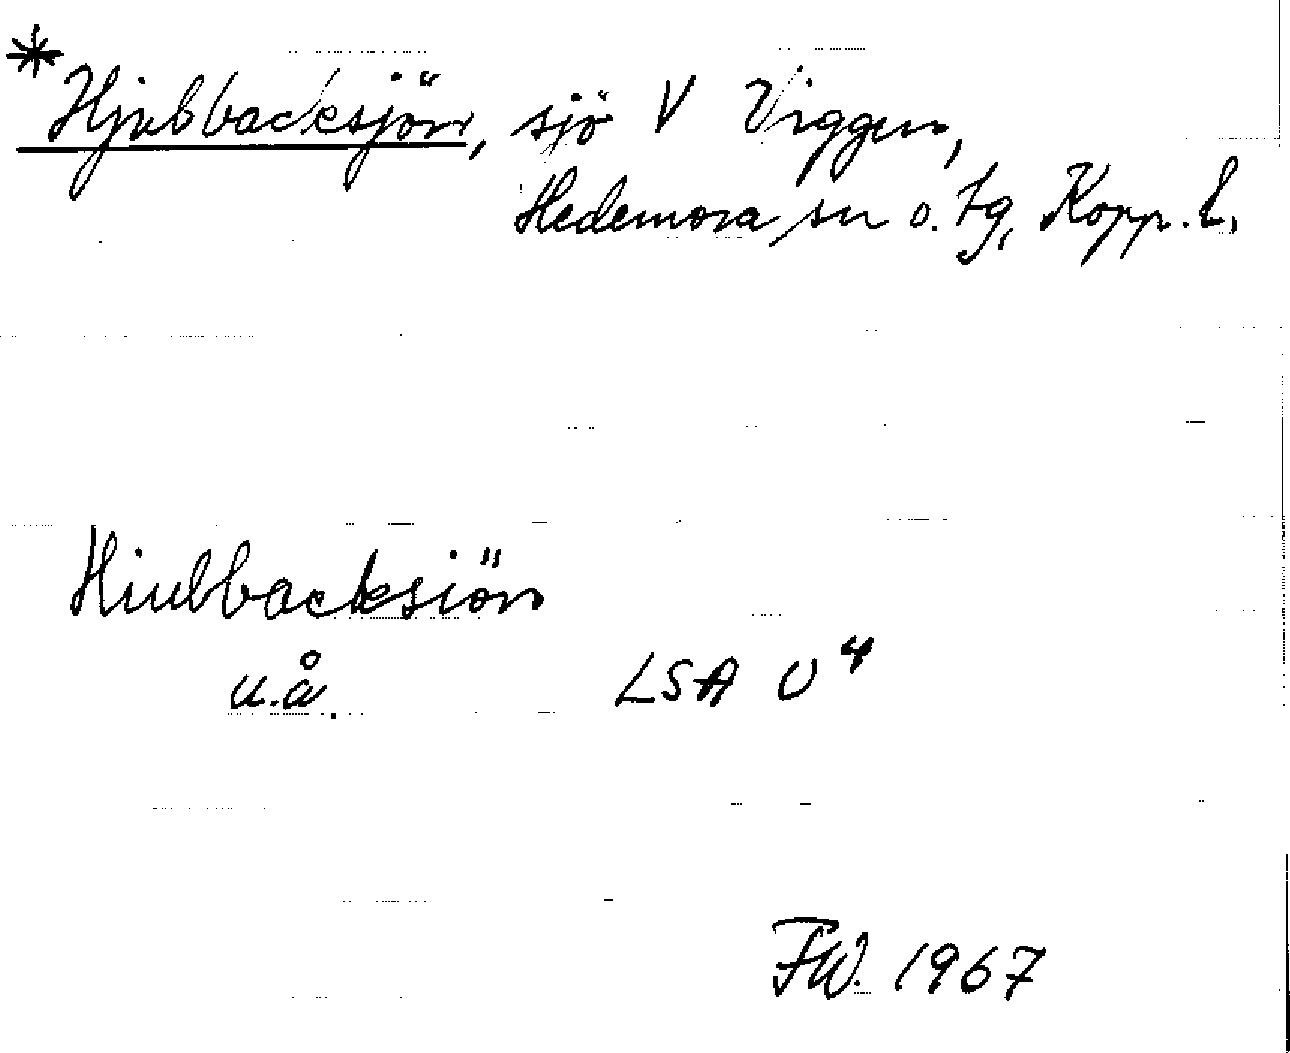 * Hjulbbacksjön, sjö V Viggen,
Hedemora sn o. tg, Kopp. l.
Hiulbbacksiön
u.å. LSA U4
FW. 1967